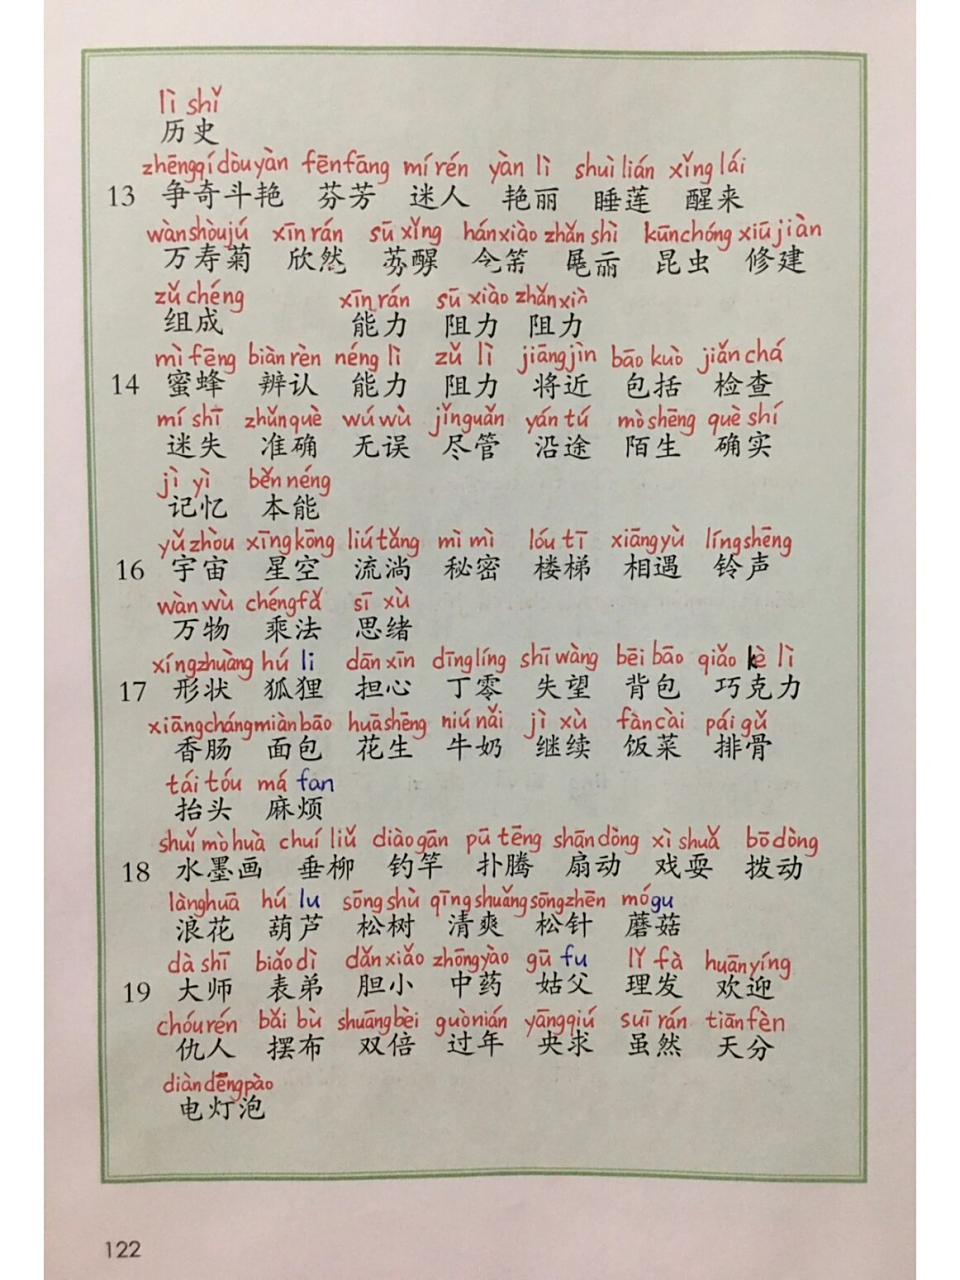 lì shǐ
历史
zhēngqídòuyàn fēnfāng mírén yàn lì shuì lián xǐng lái
13 争奇斗艳 芬芳 迷人 艳丽 睡莲 醒来
wànshòujú xīn rán sū xǐng hánxiào zhǎn shì kūnchóng xiūjiàn
万寿菊 欣然 苏醒 昆虫 修建
zǔ chéng xīn rán sū xiào zhǎnxìn
组成 能力 阻力 阻力
mì fēng biàn rèn néng lì zǔ lì jiāngjìn bāo kuò jiǎn chá
14 蜜蜂 辨认 能力 阻力 将近 包括 检查
mí shī zhǔnquè wú wù jǐnguǎn yán tú mòshēng què shí
迷失 准确 无误 尽管 沿途 陌生 确实
jì yì běn néng
记忆 本能
yǔ zhòu xīng kōng liú tǎng mì mì lóu tī xiāngyù língshēng
16 宇宙 星空 流淌 秘密 楼梯 相遇 铃声
wàn wù chéngfǎ sī xù
万物 乘法 思绪
xíngzhuàng hú li dān xīn dīnglíng shī wàng bēi bāo qiǎo kè lì
17 形状 狐狸 担心 丁零 失望 背包 巧克力
xiāngchángmiànbāo huāshēng niú nǎi jì xù fàncài pái gǔ
香肠 面包 花生 牛奶 继续 饭菜 排骨
tái tóu má fan
抬头 麻烦
shuǐ mò huà chuí liǔ diàogān pū tēng shāndòng xì shuǎ bō dòng
18 水墨画 垂柳 钓竿 扑腾 扇动 戏耍 拨动
lànghuā hú lu sōng shù qīngshuǎngsōngzhēn mógu
浪花 葫芦 松树 清爽 松针 蘑菇
dà shī biǎo dì dǎn xiǎo zhōngyào gū fu lǐ fà huānyíng
19 大师 表弟 胆小 中药 姑父 理发 欢迎
chóurén bǎi bù shuāngbèi guònián yāngqiú suī rán tiānfèn
仇人 摆布 双倍 过年 央求 虽然 天分
diàndēngpào
电灯泡
122